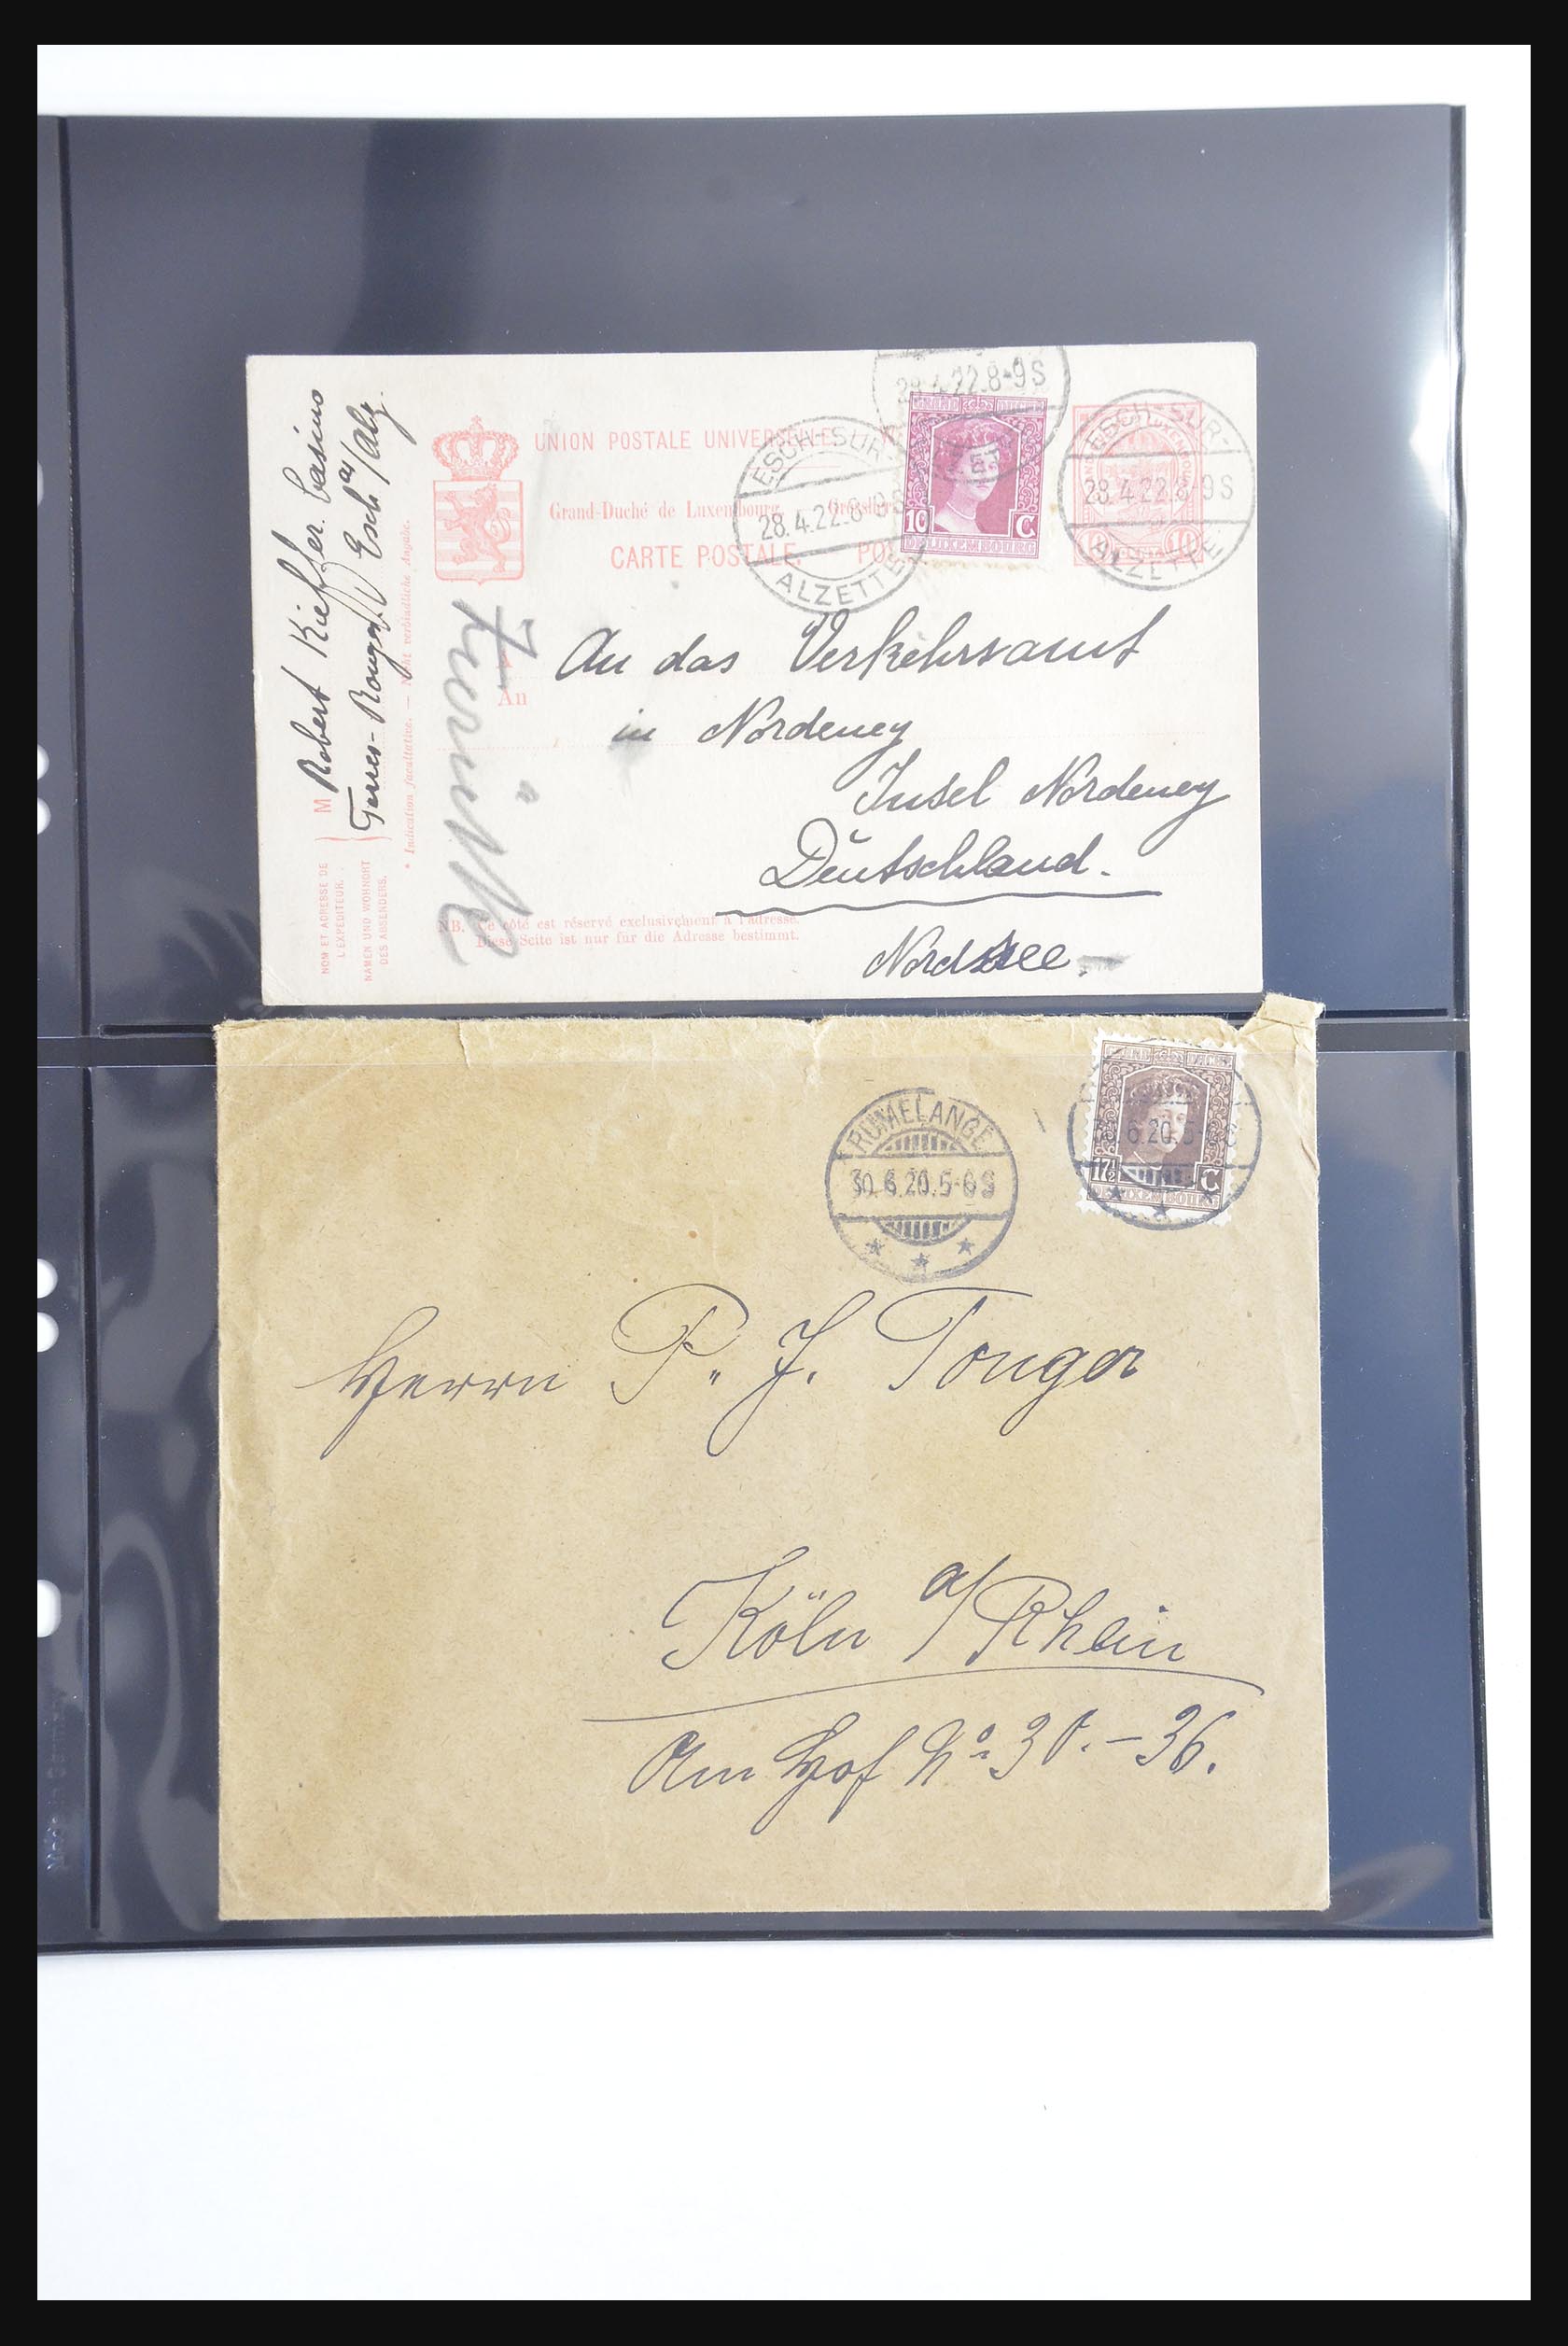 Robert Kieffer Casino
Terres-Rouges Esch s/Alz.
M
NOM ET ADRESSE DE
L'EXPÉDITEUR.
NAMEN UND WOHNORT
DES ABSENDERS.
* Indication facultative. — Nicht verbindliche Angabe.
UNION POSTALE UNIVERSELLE
Grand-Duché de Luxembourg.
CARTE POSTALE.
28.4.22.8-9S
ESCH-SUR-
28.4.22.8-9S
ALZETTE
10 C
DE LUXEMBOURG
ESCH-SUR-
28.4.22.8-9S
ALZETTE
10 10
Zurück
An
An das Verkehrsamt
in Nordeney
Insel Nordeney
Deutschland.
Nordsee.
NB. Ce côté est réservé exclusivement à l'adresse.
Diese Seite ist nur für die Adresse bestimmt.
RUMELANGE
30.6.20.5-6S
17½ C
DE LUXEMBOURG
Herrn P. J. Tonger
Köln a/Rhein
Am Hof No 30.-36.